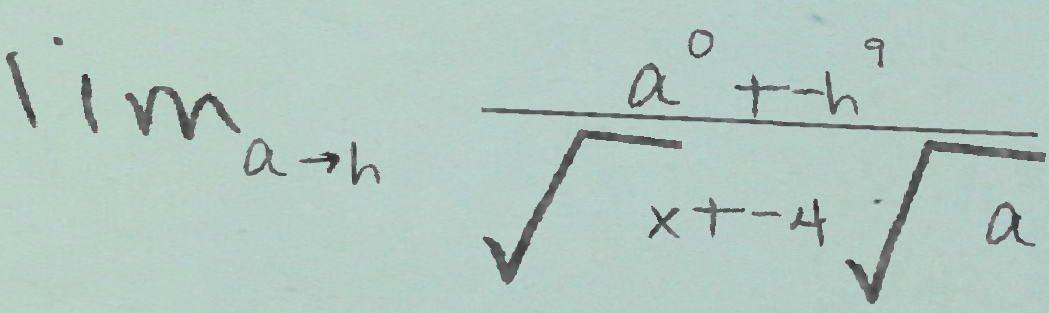 \lim_{a \to h} \frac{a^0 + -h^9}{\sqrt{x} + -4\sqrt{a}}